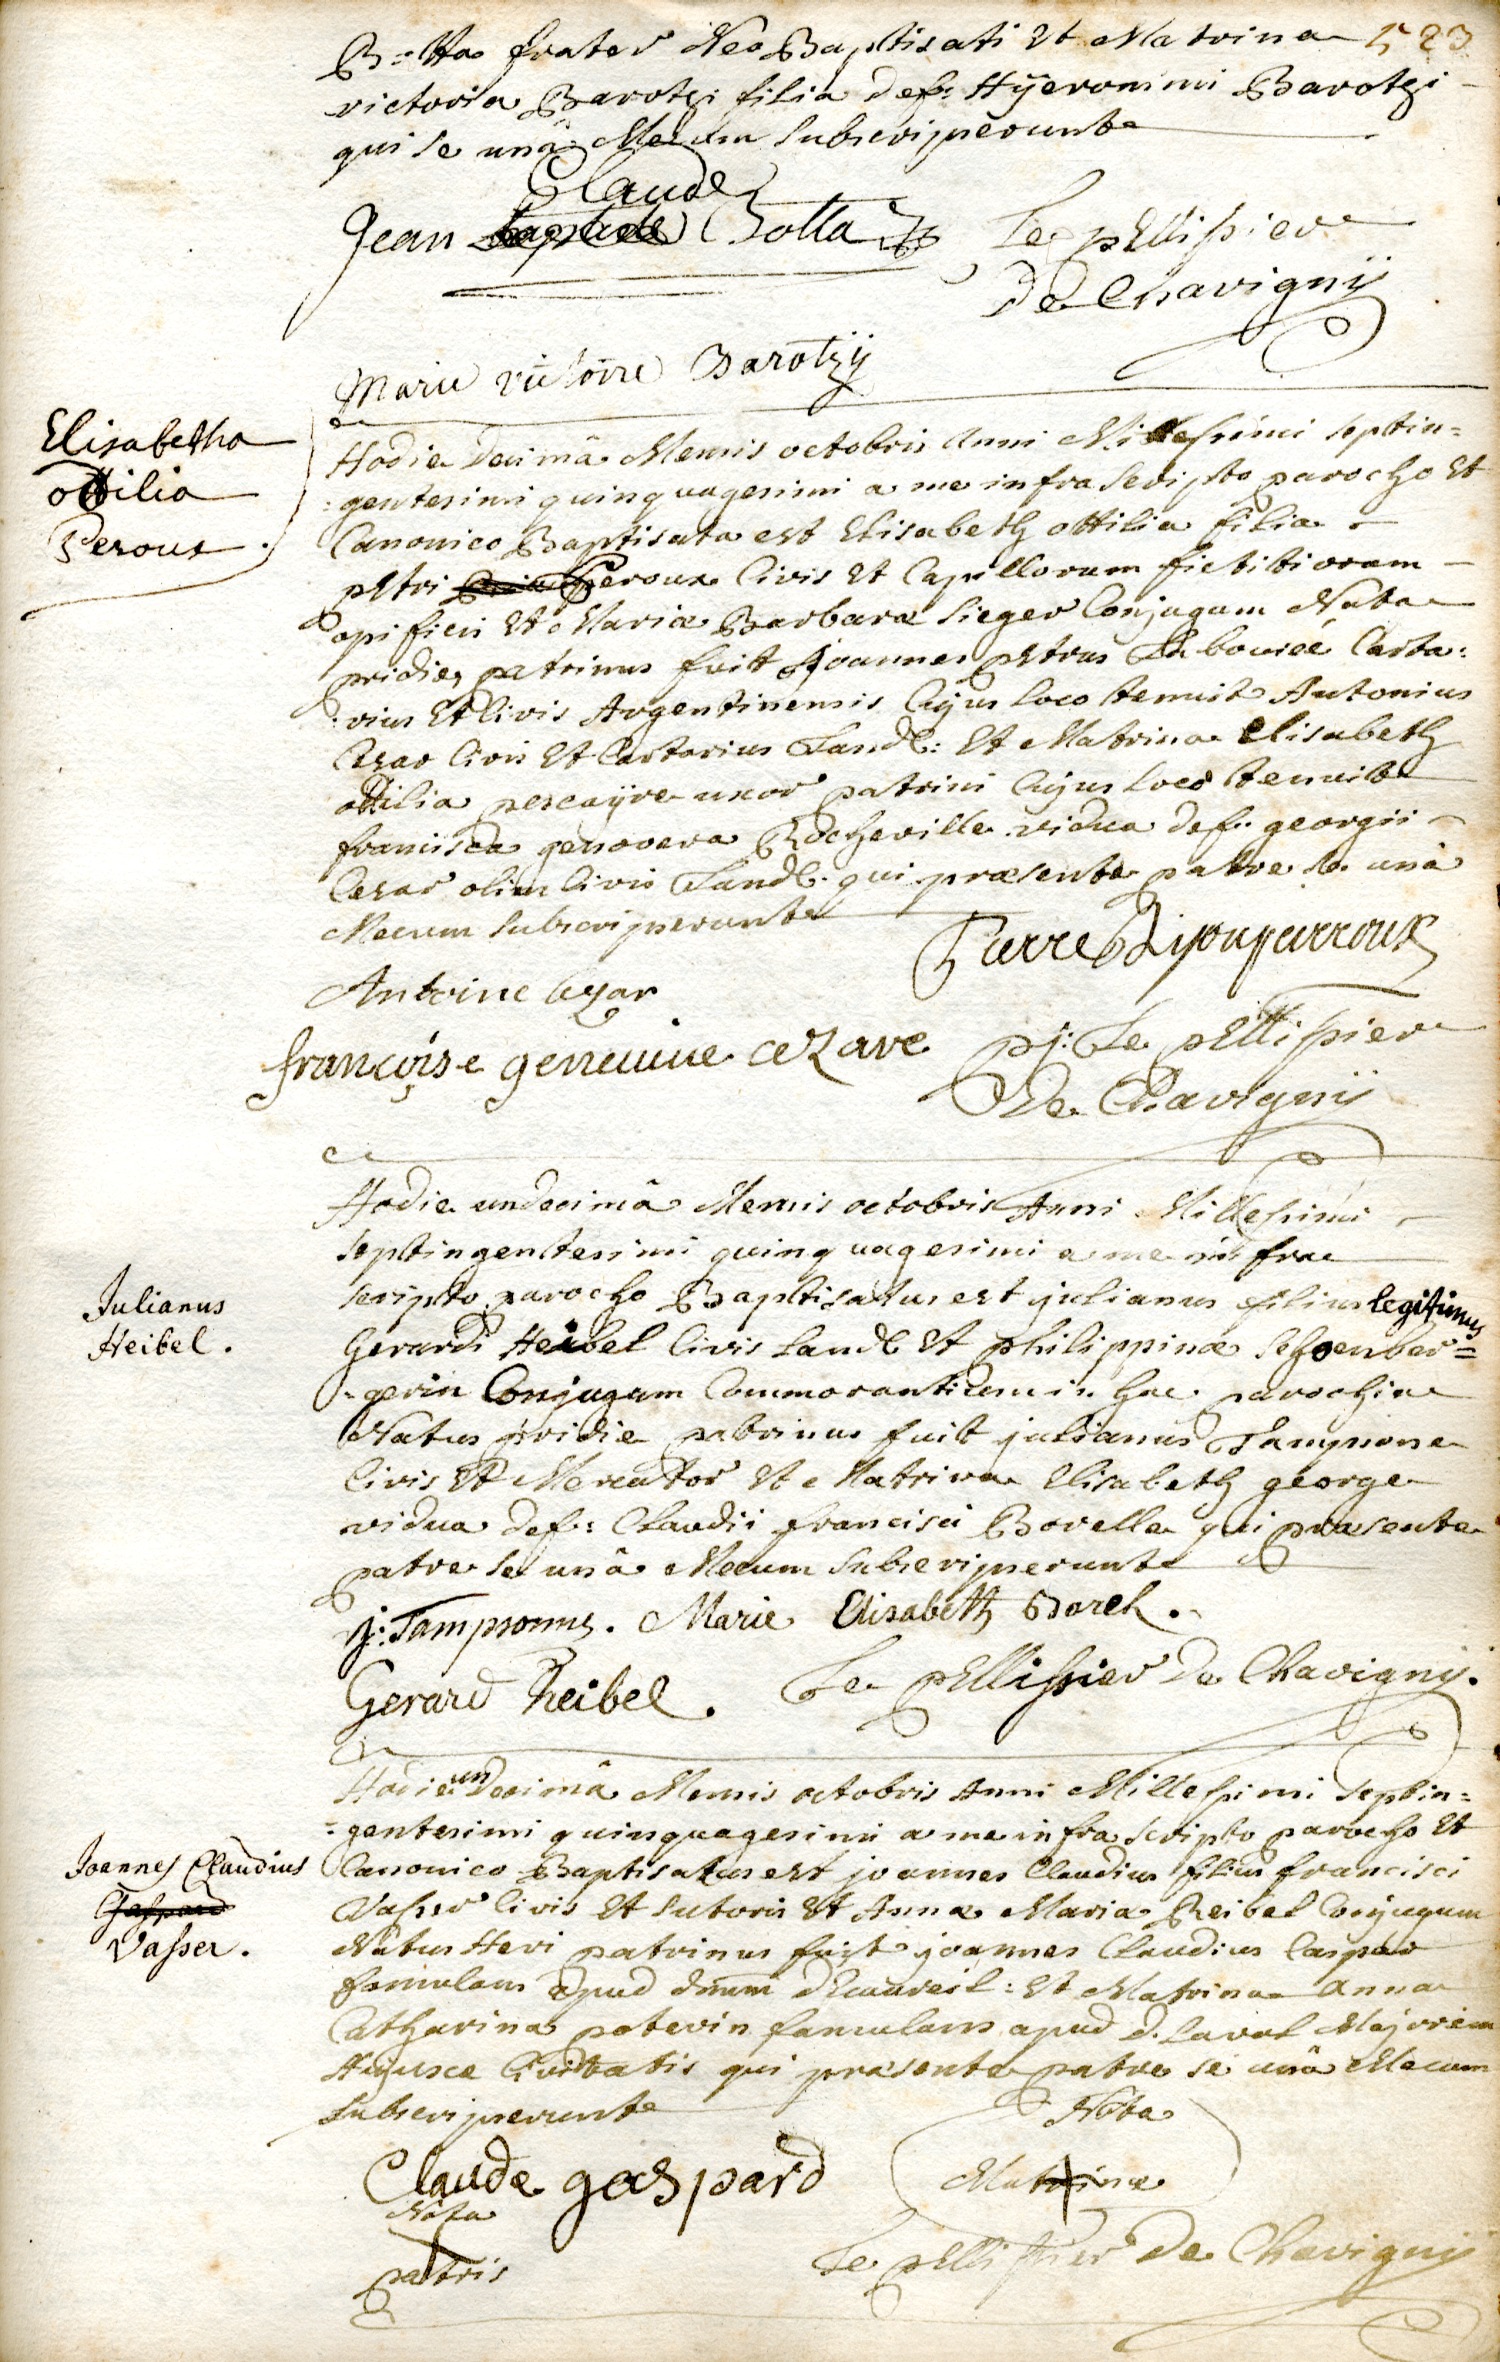 523
B:tta frater Neo Baptisati Et Matrina
victoria Barotzi filia def: Hÿeronimi Barotzi
qui se unâ Mecum Subscripserunt
Claude
Jean Botta
Le pEllissier
De Chavignÿ
Marie victoire Barotzÿ
Elisabetha
ottilia
Peroux.
Hodie Decimâ Mensis octobris Anni Millesimi septin=
=gentesimi quinquagesimi a me infra Scripto parocho Et
Canonico Baptisata est Elisabeth ottilia filia
pEtri Peroux Civis Et Capillorum fictitiorum
opificis Et Mariæ Barbaræ Sieger Conjugum Nata
pridie, patrinus fuit Joannes pEtrus Carta=
=rius Et Civis Argentinensis Cujus loco tenuit Antonius
Cezar Civis Et Cartarius Land: Et Matrina Elisabeth
ottilia uxor patrini Cujus loco tenuit
francisca genovera Rocheville vidua def: georgii
Cezar olim Civis Land: qui præsente patre se unâ
Mecum Subscripserunt
Pierre
Antoine Cezar
françoise genevieve cezare
pj: Le pEllissier
De Chavignÿ
Julianus
Heibel.
Hodie undecimâ Mensis octobris Anni Millesimi
septingentesimi quinquagesimi a me infra
scripto parocho Baptisatus est julianus filius legitimus
Gerardi Heibel Civis Land: Et philippinæ Schoenber=
=gerin Conjugum Commorantium in hac parochia
Natus pridie patrinus fuit julianus Tampsone
Civis Et Mercator Et Matrina Elisabeth george
vidua def: Claudii francisci Borelle qui præsente
patre se unâ Mecum Subscripserunt
j: Tampsonne. Marie Elisabeth Borel.
Gerard heibel. Le pEllissier De Chavignÿ.
Joannes Claudius
Gaspard
Vasser.
Hodie undecimâ Mensis octobris Anni Millesimi septin=
=gentesimi quinquagesimi a me infra scripto parocho Et
Canonico Baptisatus est joannes Claudius filius francisci
Vasser Civis Et Sutoris Et Annæ Mariæ Heibel Conjugum
Natus Heri patrinus fuit joannes Claudius Caspar
famulans apud dnum Et Matrina Anna
Catharina potevin famulans apud d. Laval Majorem
Hujusce Civitatis qui præsente patre se unâ Mecum
Subscripserunt
Nota
Claude gaspard
Matrinæ
Nota
patris
Le pEllissier De Chavignÿ